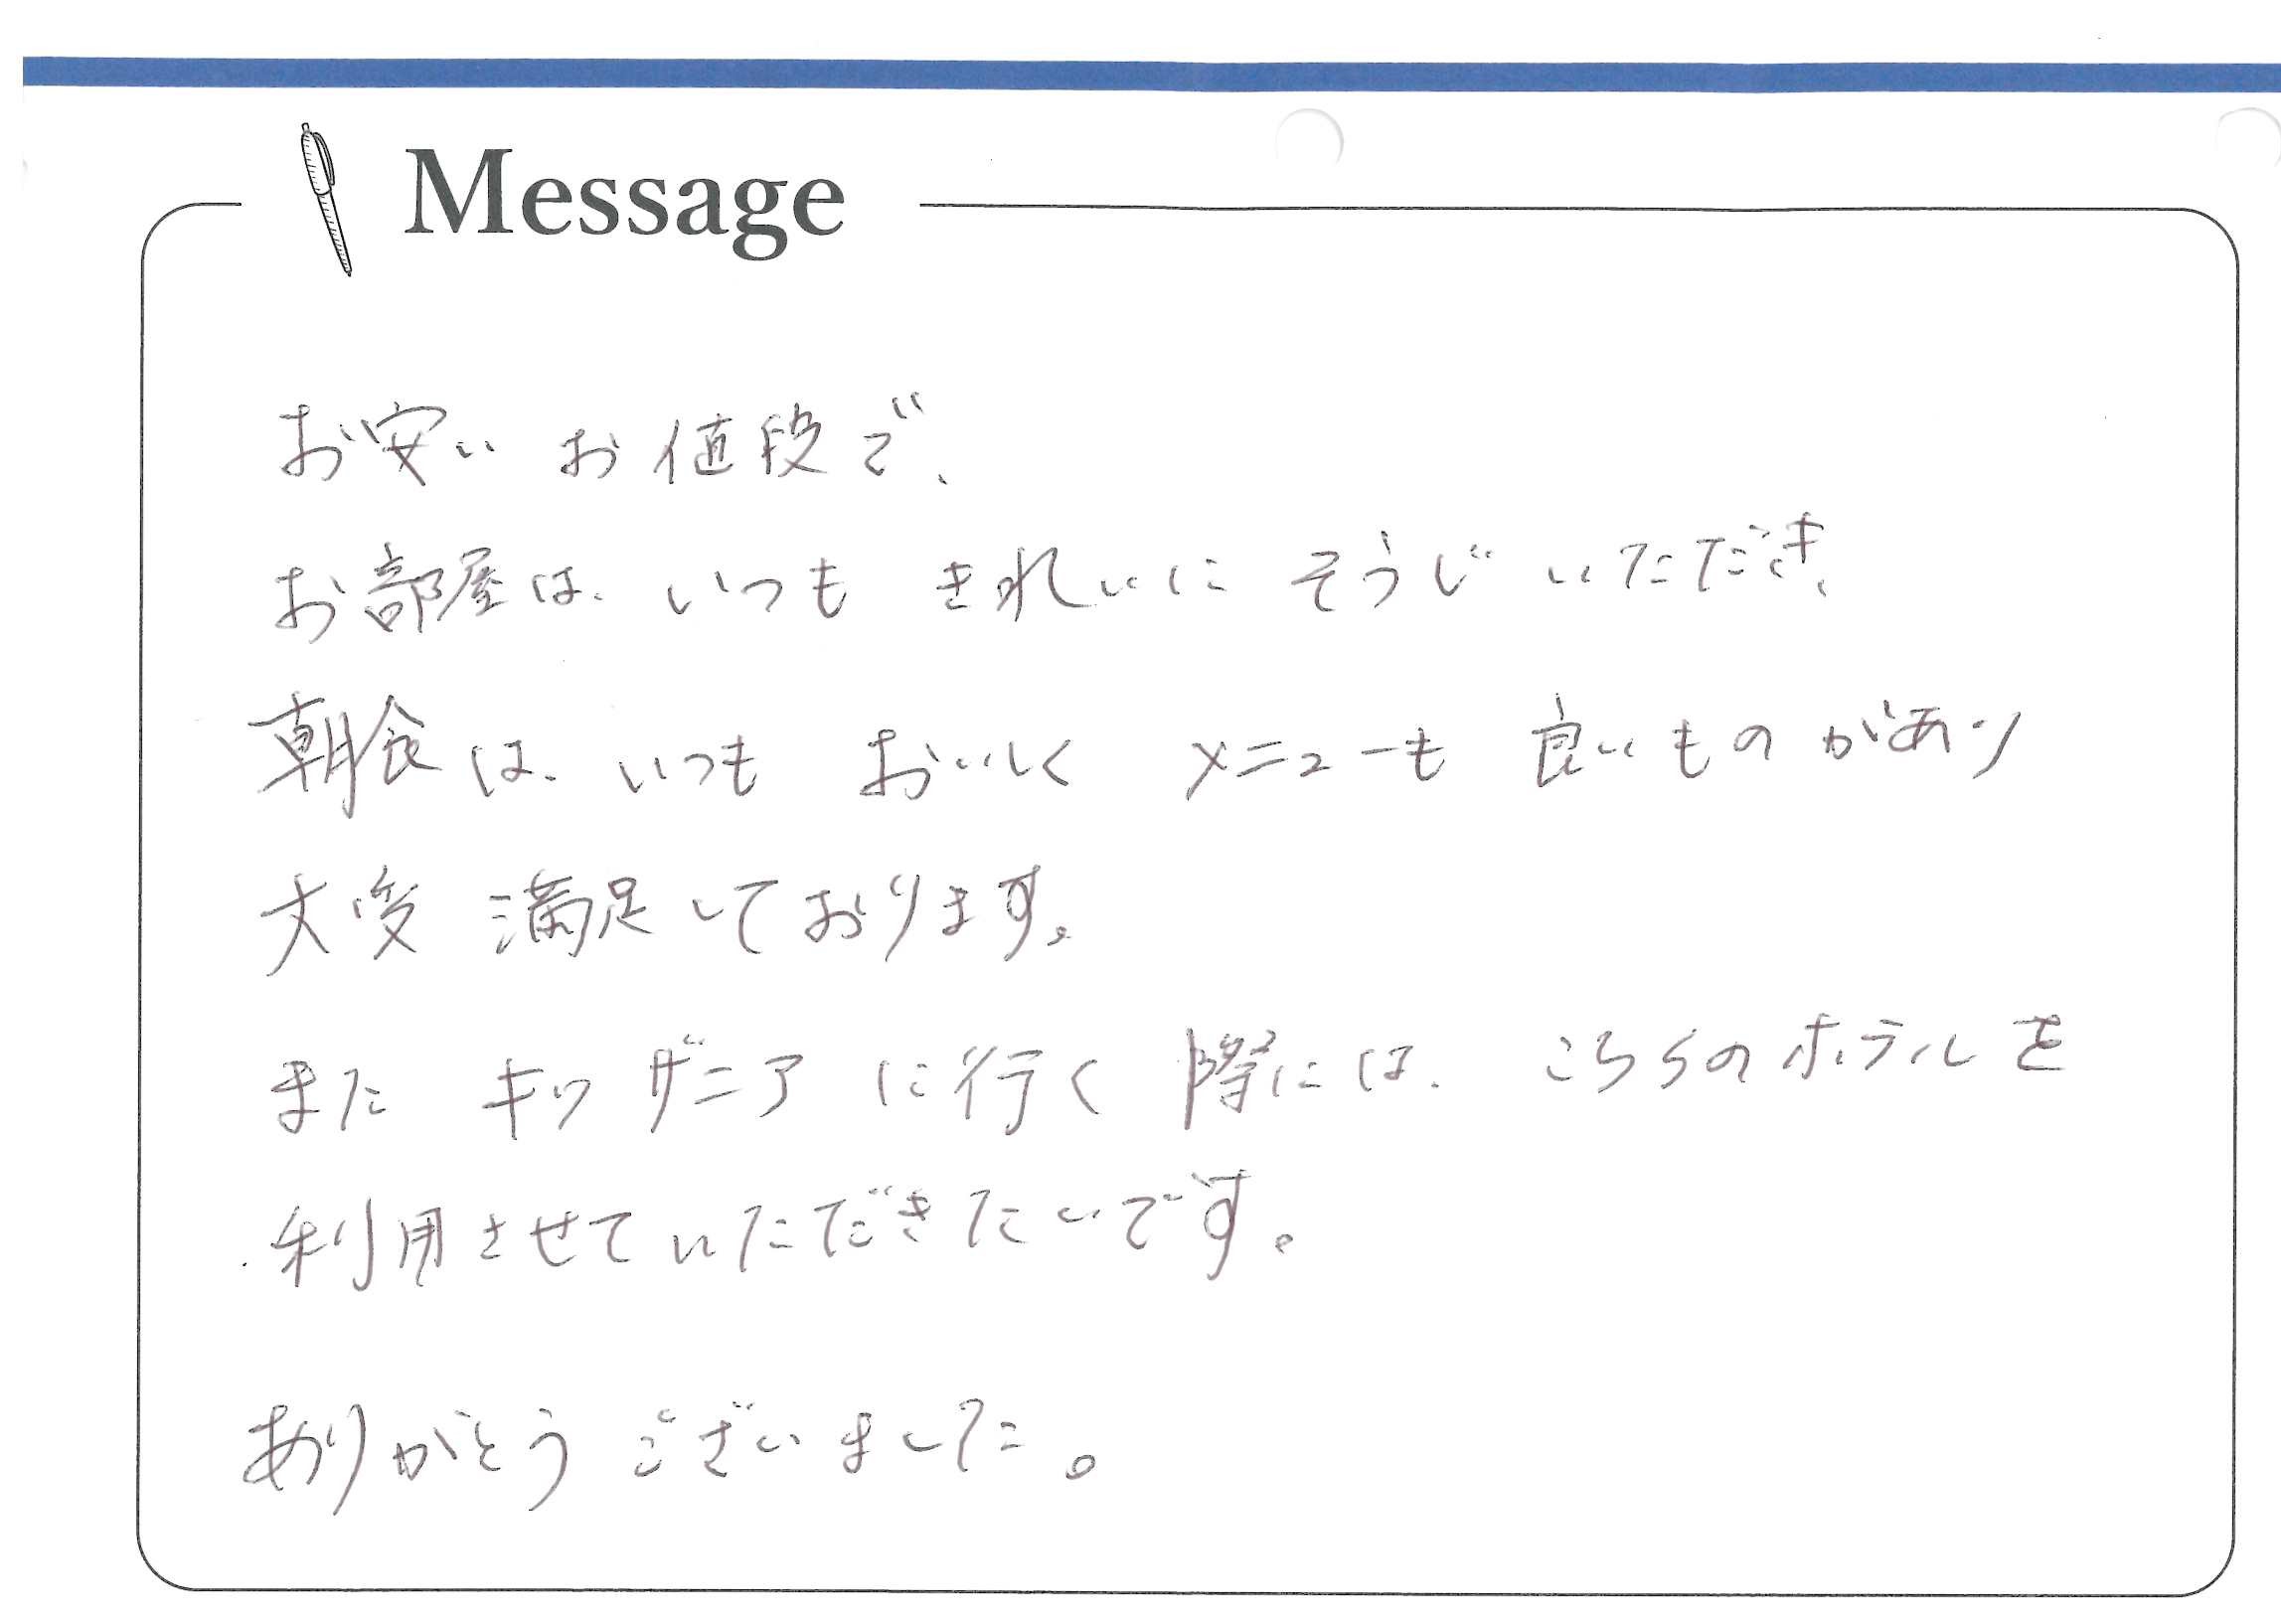 Message
お安い お値段で、
お部屋は、いつも きれいに そうじ いただき、
朝食は、いつも おいしく メニューも 良いものがあり
大変 満足しております。
また キッザニア に行く 際には、こちらのホテルを
利用させていただきたいです。
ありがとう ございました。